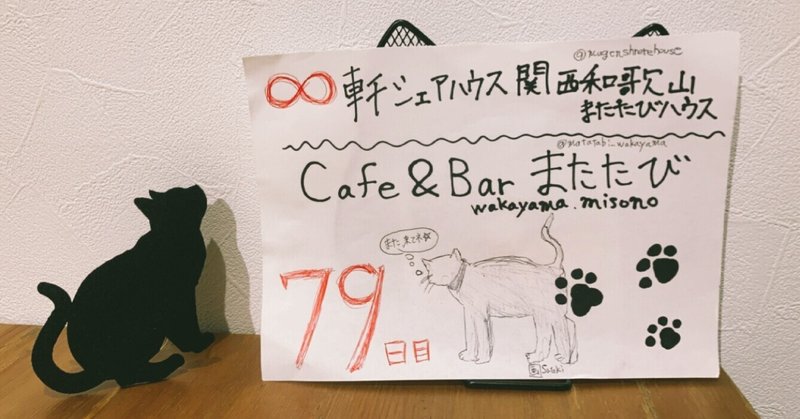 @mugensharehouse
∞軒シェアハウス関西和歌山
またたびハウス
@matatabi_wakayama
Cafe & Bar またたび
wakayama.misono
また来てネ☆
79日目
Satoki